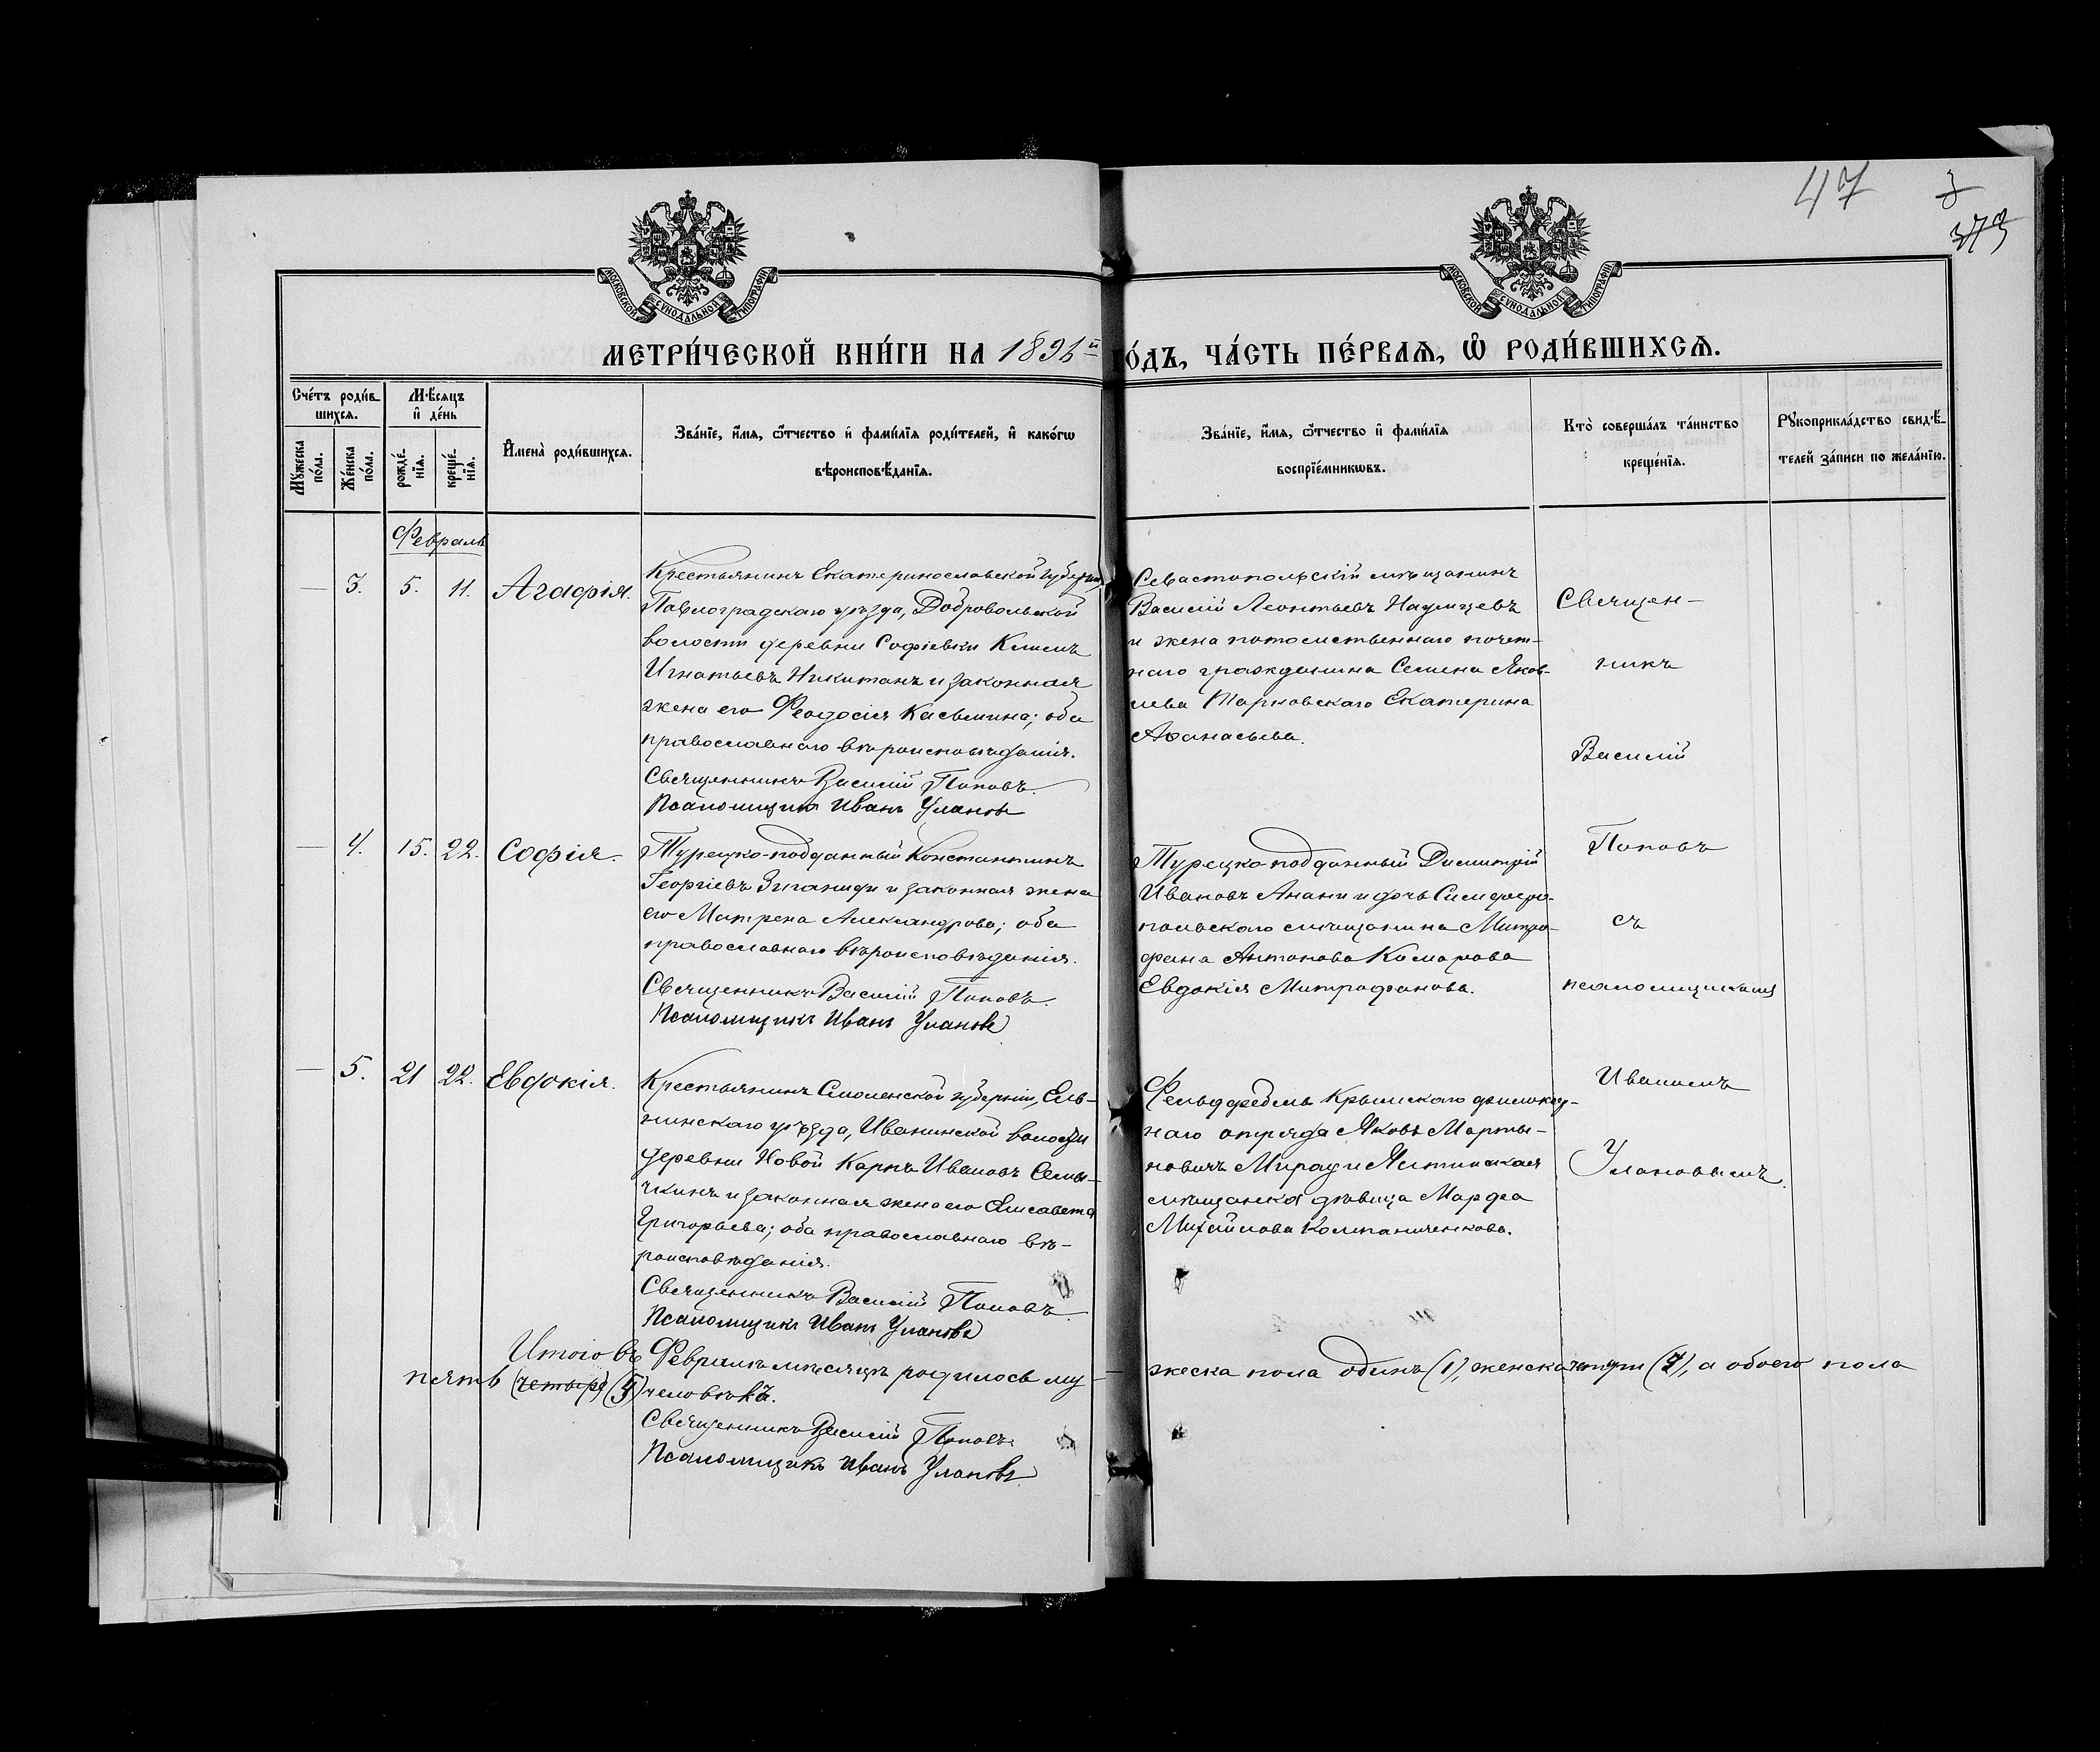 47 3
373
МОСКОВСКОЙ СѴНОДАЛЬНОЙ ТИПОГРАФІИ
МОСКОВСКОЙ СѴНОДАЛЬНОЙ ТИПОГРАФІИ
МЕТРИ́ЧЕСКОЙ КНИ́ГИ НА 189 й
О́ДЪ, ЧА́СТЬ ПЕ́РВАЯ, Ѽ РОДИ́ВШИХСѦ.
Сче́тъ роди́в-
шихсѧ.
Мѣ́сяцъ
и҆ де́нь
Му́жеска по́ла.
Же́нска по́ла.
рожде́нїѧ.
креще́нїѧ.
И҆мена̀ роди́вшихсѧ.
Зва́нїе, и҆́мѧ, ѻ҆́тчество и҆ фами́лїѧ роди́телей, и҆ како́гѡ
вѣроисповѣ́данїѧ.
Зва́нїе, и҆́мѧ, ѻ҆́тчество и҆ фами́лїѧ
воспрїе́мникѡвъ.
Кто̀ соверша́лъ та́инство
креще́нїѧ.
Рꙋкоприкла́дство свидѣ́-
телей за́писи по жела́нїю.
Февраль
— 3. 5. 11. Агафія.
Крестьянинъ Екатеринославской губерніи,
Павлоградскаго уѣзда, Добровольской
волости деревни Софіевки Климъ
Игнатьевъ Никитанъ и законная
жена его Феодосія Касьмина; оба
православнаго вѣроисповѣданія.
Священникъ Василій Поповъ.
Псаломщикъ Иванъ Улановъ
Севастопольскій мѣщанинъ
Василій Леонтьевъ
и жена потомственнаго почет-
наго гражданина Семена Яков-
лева Тарновскаго Екатерина
Аѳанасьева.
— 4. 15. 22. Софія.
Турецко-подданный Константинъ
Георгіевъ Зиганиди и законная жена
его Матрена Александрова; оба
православнаго вѣроисповѣданія.
Священникъ Василій Поповъ.
Псаломщикъ Иванъ Улановъ
Турецко-подданный Димитрій
Ивановъ Анани и дочь Симферо-
польскаго мѣщанина Митро-
фана Антонова Комарова
Евдокія Митрофанова.
— 5. 21 22. Евдокія.
Крестьянинъ Смоленской губерніи, Ель-
нинскаго уѣзда, Иванинской волости
деревни Новой Карпъ Ивановъ Семы-
чкинъ и законная жена его Елисавета
Григорьева; оба православнаго вѣ-
роисповѣданія.
Священникъ Василій Поповъ.
Псаломщикъ Иванъ Улановъ
Фельдфебель Крымскаго филоксер-
наго отряда Яковъ Марты-
новичъ Мирау и Ялтинская
мѣщанка дѣвица Марфа
Михайлова Компаниченкова.
Священ-
никъ
Василій
Поповъ
съ
псаломщикомъ
Иваномъ
Улановымъ.
Итого въ Февралѣ мѣсяцѣ родилось му- жеска пола одинъ (1), женска четыре (4), а обоего пола
пять (четыре) (5) человѣкъ.
Священникъ Василій Поповъ.
Псаломщикъ Иванъ Улановъ